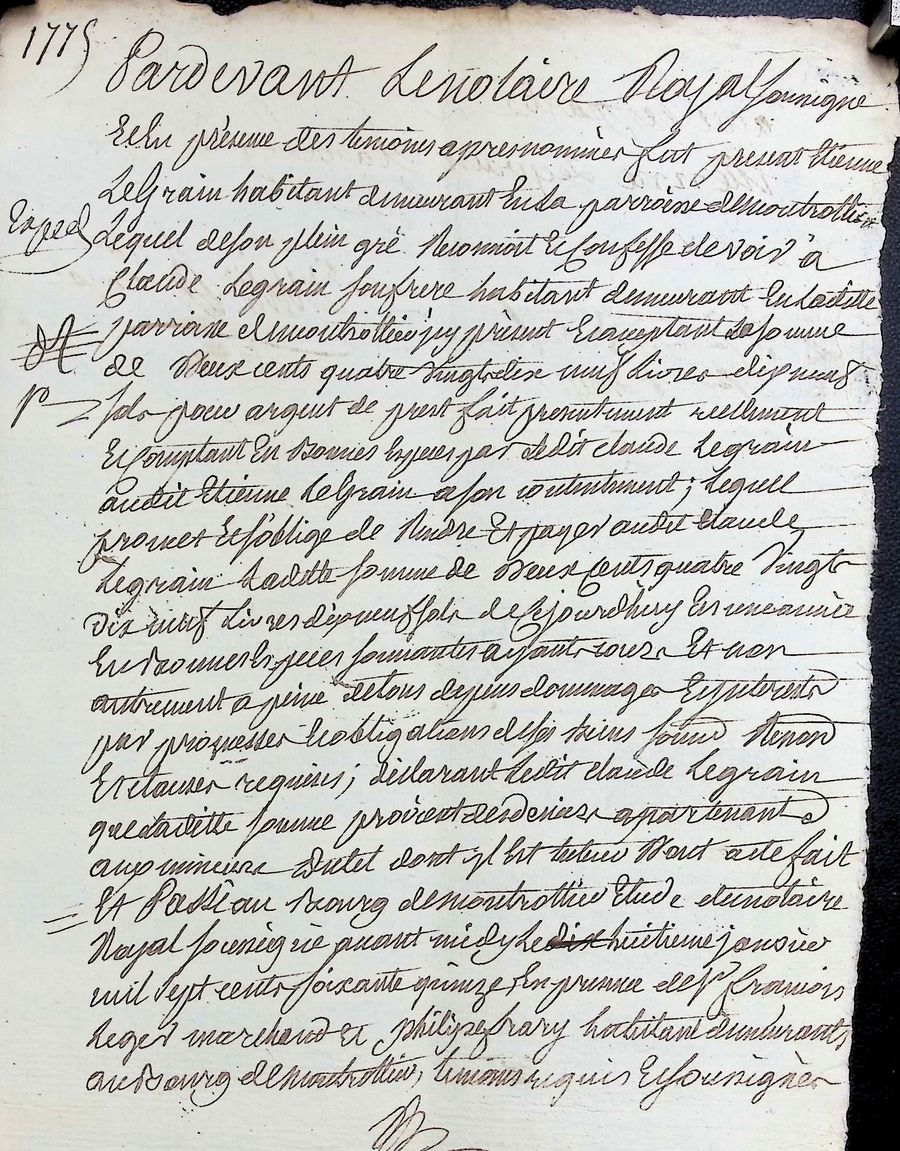 1775
Pardevant Lenotaire Royal Soussigné
Et En présence des temoins apresnommés fut present Etienne
LeGrain habitant demeurant En La parroisse demontrottier
Exped
Lequel deson plein gré Reconnoit Et Confesse devoir à
Claude Legrain son frere habitant demeurant En Ladite
parroisse demontrottier jcy présent Et acceptant La somme
de Deux cents quatre Vingt dix neuf Livres dixneuf
sols pour argent de prest fait presentement réellement
Et Comptant En Bonnes Especes par Ledit claude Legrain
audit Etienne LeGrain a son contentement; Lequel
promet Et s'oblige de Rendre Et payer audit Claude
Legrain Ladite somme de Deux Cents quatre Vingt
Dix neuf Livres dixneuf sols de cejourdhuy En une année
En Bonnes Especes sonnantes ayant cours Et non
autrement a peine de tous depens dommages Et jnterests
par promesses Et obligations de ses biens soumd Renond
Et clauses requises; déclarant Ledit claude Legrain
que Ladite somme provient des deniers apartenant
aux mineurs dont jl Est tuteur Dont acte fait
Et Passé au Bourg demontrottier Etude dunotaire
Royal soussigné avant midy Le dix huitieme janvier
mil sept cents soixante quinze En presence de Sr françois
Leger marchand Et philipe frary habitants demeurants
au Bourg de montrottier, temoins requis Et soussignés